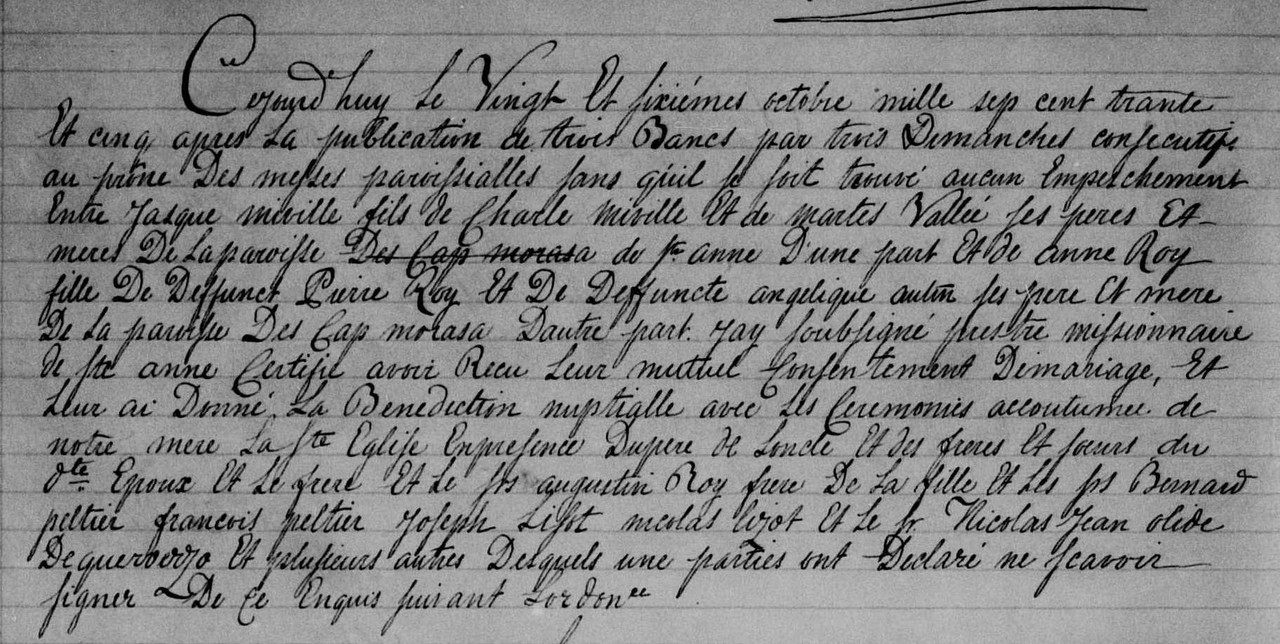 Cejourd'huy Le Vingt Et sixiémes octobre mille sep cent trante
Et cinq apres La publication de trois Bancs par trois Dimanches consecutifs
au prône Des messes paroissialles sans quil se soit trouvé aucun Empeschement
Entre Jasque miville fils de Charle miville Et de martes Valleé ses peres Et
meres De La paroisse Des Cap morasa de ste anne D'une part Et de anne Roy
fille De Deffunct Pierre Roy Et De Deffuncte angelique autin ses pere Et mere
De La paroisse Des Cap morasa Dautre part. Jay soubsigné prestre missionnaire
de ste anne Certifie avoir Recu Leur mutuel Consentement Demariage, Et
Leur ai Donné La Benediction nuptialle avec Les Ceremonies accoutumee de
notre mere La Ste Eglise Enpresence Dupere de Loncle Et des freres Et soeurs du
dte Epoux Et Le frere Et Le srs augustin Roy frere De La fille Et Les srs Bernard
peltier francois peltier Joseph Lisot nicolas Lizot Et Le sr Nicolas Jean olide
Dequerverzo Et plusieurs autres Desquels une parties ont Declaré ne scavoir
signer De Ce Enquis suivant Lordonce